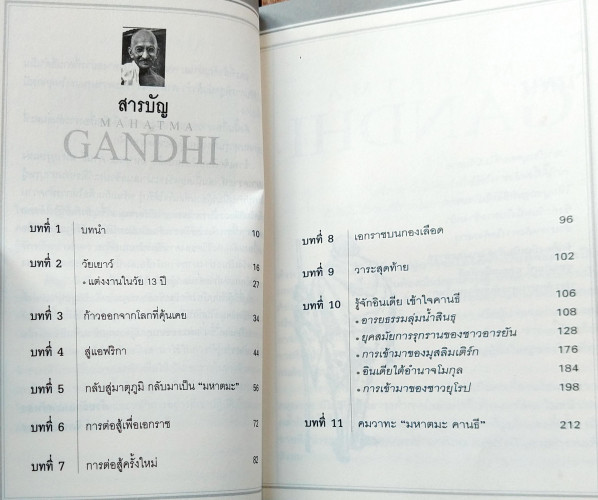 สารบัญ
MAHATMA
GANDHI
บทที่ 1 บทนำ 10
บทที่ 2 วัยเยาว์ 16
• แต่งงานในวัย 13 ปี 27
บทที่ 3 ก้าวออกจากโลกที่คุ้นเคย 34
บทที่ 4 สู่แอฟริกา 44
บทที่ 5 กลับสู่มาตุภูมิ กลับมาเป็น “มหาตมะ” 56
บทที่ 6 การต่อสู้เพื่อเอกราช 72
บทที่ 7 การต่อสู้ครั้งใหม่ 82
บทที่ 8 เอกราชบนกองเลือด 96
บทที่ 9 วาระสุดท้าย 102
บทที่ 10 รู้จักอินเดีย เข้าใจคานธี 106
• อารยธรรมลุ่มน้ำสินธุ 108
• ยุคสมัยการรุกรานของชาวอารยัน 128
• การเข้ามาของมุสลิมเติร์ก 176
• อินเดียใต้อำนาจโมกุล 184
• การเข้ามาของชาวยุโรป 198
บทที่ 11 คมวาทะ “มหาตมะ คานธี” 212